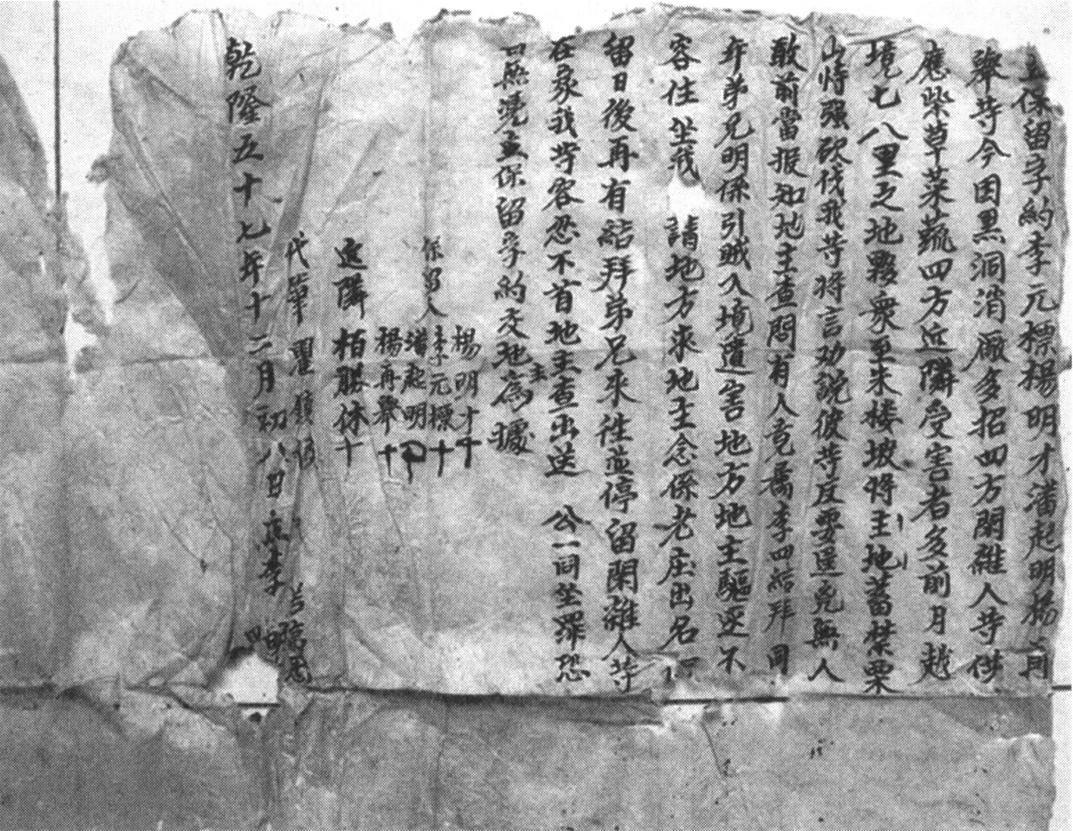 立保留字約李元標楊明才潘起明楊
舉等今因黑洞消廠多招四方閑雜人等供
應柴草菜蔬四方近隣受害者多前月越
境七八里之地夥衆至朱楼坡將主地蓄禁栗
山恃强砍伐我等將言劝説彼等反要逞兇無人
敢前當报知地主查問有人竟爲李四結拜同
弟兄明係引贼入境遺害地方地主驅逐不
容住坐我 請地方求地主念係老庄出名
留日後再有結拜弟兄來往並停留閑雜人等
在家我等容忽不首地主查出送 公一同坐罪恐
口無憑立保留字約交地主爲據
保留人
楊明才十
李元標十
潘起明
楊再舉十
近隣 栢勝休十
代筆
乾隆五十七年十二月初八日立